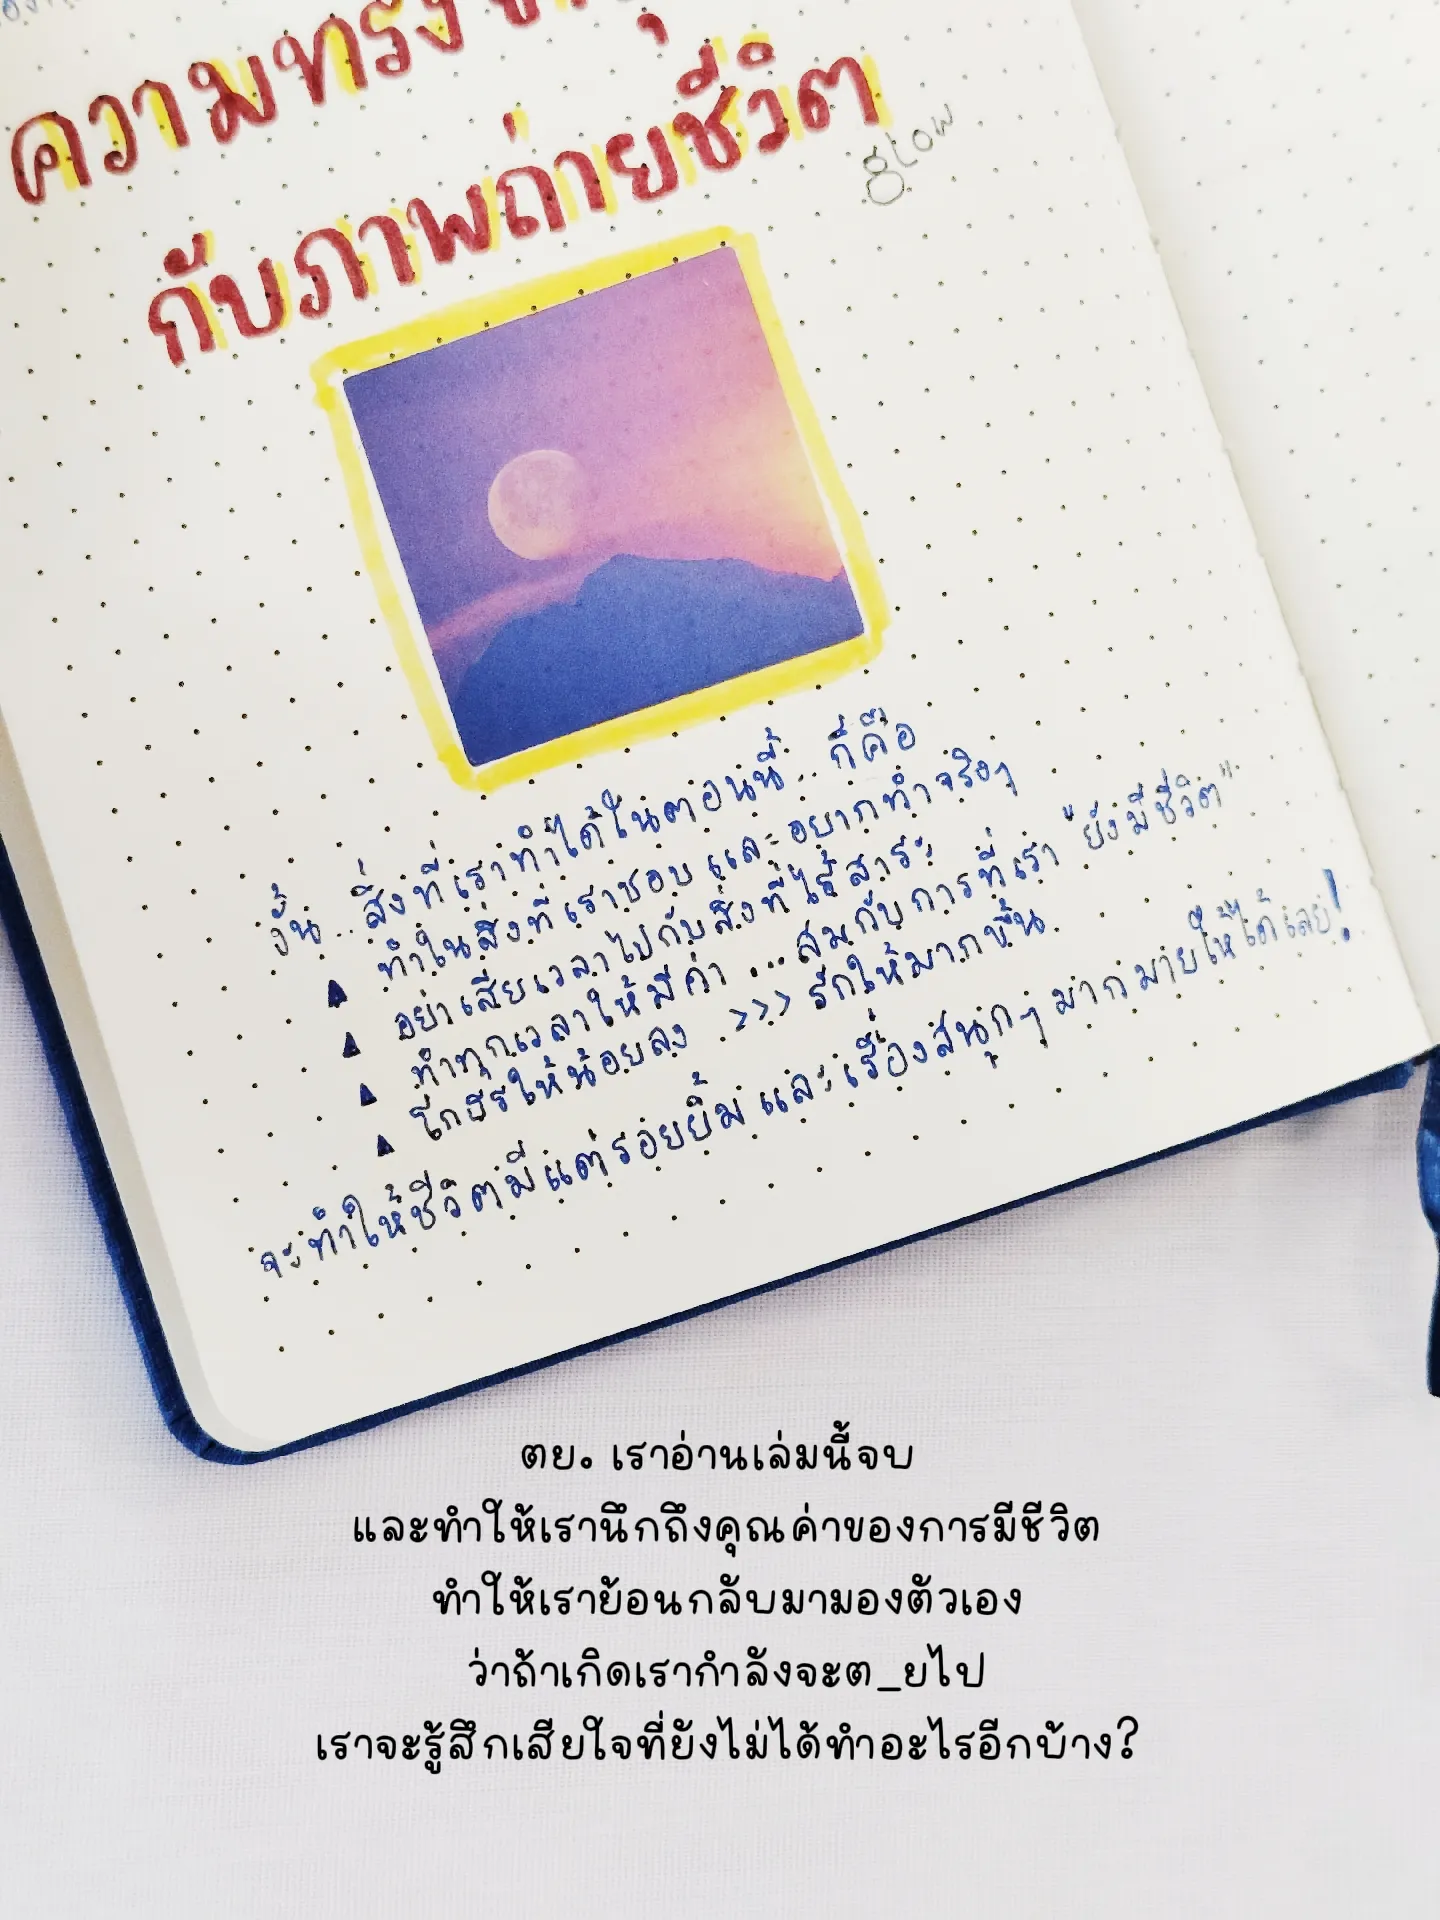 ความทรงจำ
กับภาพถ่ายชีวิต
glow
งั้น...สิ่งที่เราทำได้ในตอนนี้...ก็คือ
▲ ทำในสิ่งที่เราชอบและอยากทำจริงๆ
▲ อย่าเสียเวลาไปกับสิ่งที่ไร้สาระ
▲ ทำทุกเวลาให้มีค่า...สมกับการที่เรา "ยังมีชีวิต"
▲ โกรธให้น้อยลง >>> รักให้มากขึ้น
จะทำให้ชีวิตมีแต่รอยยิ้มและเรื่องสนุกๆ มากมายให้ได้เลย!
ตย. เราอ่านเล่มนี้จบ
และทำให้เรานึกถึงคุณค่าของการมีชีวิต
ทำให้เราย้อนกลับมามองตัวเอง
ว่าถ้าเกิดเรากำลังจะต_ยไป
เราจะรู้สึกเสียใจที่ยังไม่ได้ทำอะไรอีกบ้าง?